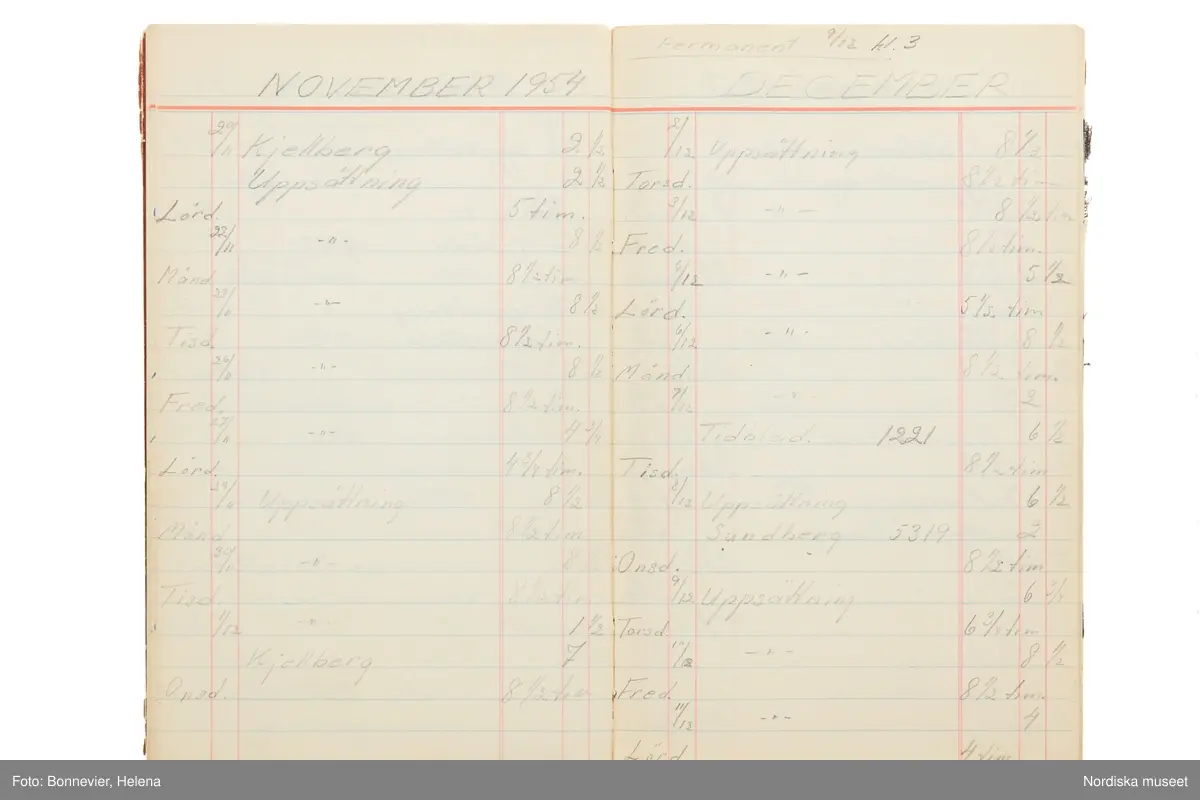 NOVEMBER 1954
20/11 Kjellberg 2 1/2
Uppsättning 2 1/2
Lörd. 5 tim.
22/11 -"- 8 1/2
Månd. 8 1/2 tim
23/11 -"- 8 1/2
Tisd. 8 1/2 tim.
26/11 -"- 8 1/2
Fred. 8 1/2 tim.
27/11 -"- 4 3/4
Lörd. 4 3/4 tim.
29/11 Uppsättning 8 1/2
Månd. 8 1/2 tim
30/11 -"- 8 1/2
Tisd. 8 1/2 tim
1/12 -"- 1 1/2
Kjellberg 7
Onsd. 8 1/2 tim
Permanent 9/12 kl. 3
DECEMBER
2/12 Uppsättning 8 1/2
Torsd. 8 1/2 tim
3/12 -"- 8 1/2 tim
Fred. 8 1/2 tim.
4/12 -"- 5 1/2
Lörd. 5 1/2 tim
6/12 -"- 8 1/2
Månd. 8 1/2 tim.
7/12 -"- 2
Tidölad. 1221 6 1/2
Tisd. 8 1/2 tim
8/12 Uppsättning 6 1/2
Sundberg 5319 2
Onsd. 8 1/2 tim
9/12 Uppsättning 6 3/4
Torsd 6 3/4 tim
10/12 -"- 8 1/2
Fred. 8 1/2 tim.
11/12 -"- 4
Lörd. 4 tim
Foto: Bonnevier, Helena
Nordiska museet